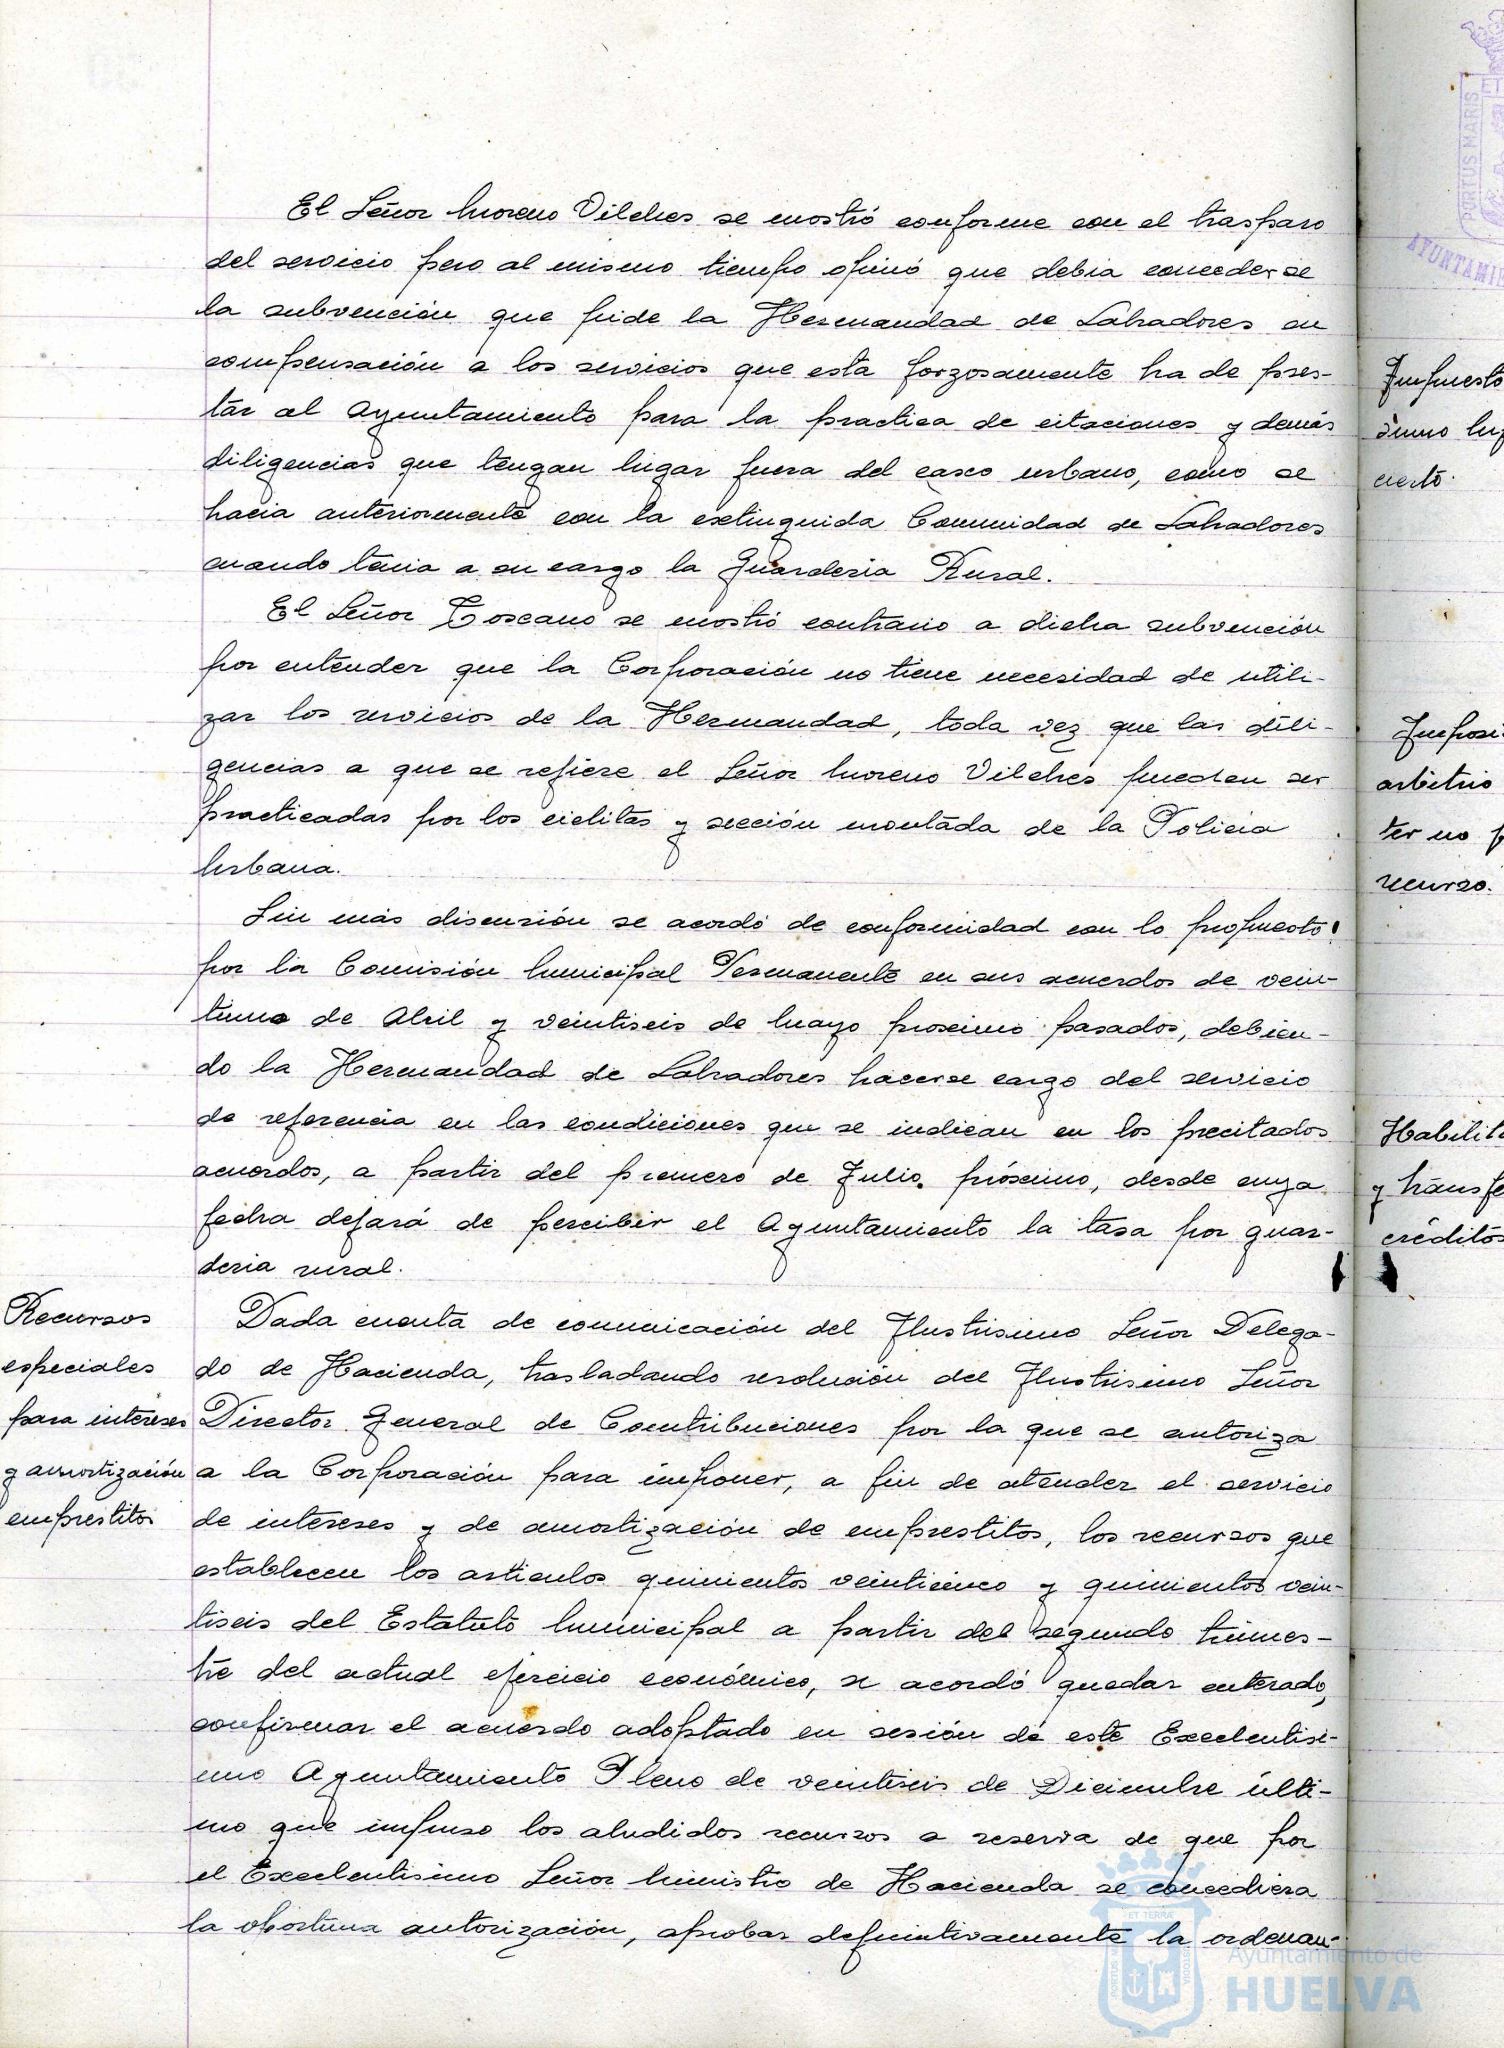 El Señor Moreno Vilches se mostró conforme con el traspaso
del servicio pero al mismo tiempo opinó que debia concederse
la subvención que pide la Hermandad de Labradores en
compensación a los servicios que esta forzosamente ha de pres-
tar al Ayuntamiento para la practica de citaciones y demás
diligencias que tengan lugar fuera del casco urbano, como se
hacia anteriormente con la extinguida Comunidad de Labradores
cuando tenia a su cargo la Guarderia Rural.
El Señor Toscano se mostró contrario a dicha subvención
por entender que la Corporación no tiene necesidad de utili-
zar los servicios de la Hermandad, toda vez que las dili-
gencias a que se refiere el Señor Moreno Vilches pueden ser
practicadas por los ciclitas y sección montada de la Policia
Urbana.
Sin más discusión se acordó de conformidad con lo propuesto
por la Comisión Municipal Permanente en sus acuerdos de vein-
tiuno de Abril y veintiseis de Mayo proximo pasados, debien-
do la Hermandad de Labradores hacerse cargo del servicio
de referencia en las condiciones que se indican en los precitados
acuerdos, a partir del primero de Julio próximo, desde cuya
fecha dejará de percibir el Ayuntamiento la tasa por guar-
deria rural.
Recursos
especiales
para intereses
y amortización
emprestitos
Dada cuenta de comunicación del Ilustrisimo Señor Delega-
do de Hacienda, trasladando resolución del Ilustrisimo Señor
Director General de Contribuciones por la que se autoriza
a la Corporación para imponer, a fin de atender el servicio
de intereses y de amortización de emprestitos, los recursos que
establecen los articulos quinientos veinticinco y quinientos vein-
tiseis del Estatuto Municipal a partir del segundo trimes-
tre del actual ejercicio económico, se acordó quedar enterado,
confirmar el acuerdo adoptado en sesión de este Excelentisi-
mo Ayuntamiento Pleno de veintiseis de Diciembre últi-
mo que impuso los aludidos recursos a reserva de que por
el Excelentisimo Señor Ministro de Hacienda se concediera
la oportuna autorización, aprobar definitivamente la ordenan-
Impuesto
cierto.
arbitrio
ter no
recurso.
créditos
PORTUS MARIS
Ayuntamiento de
HUELVA